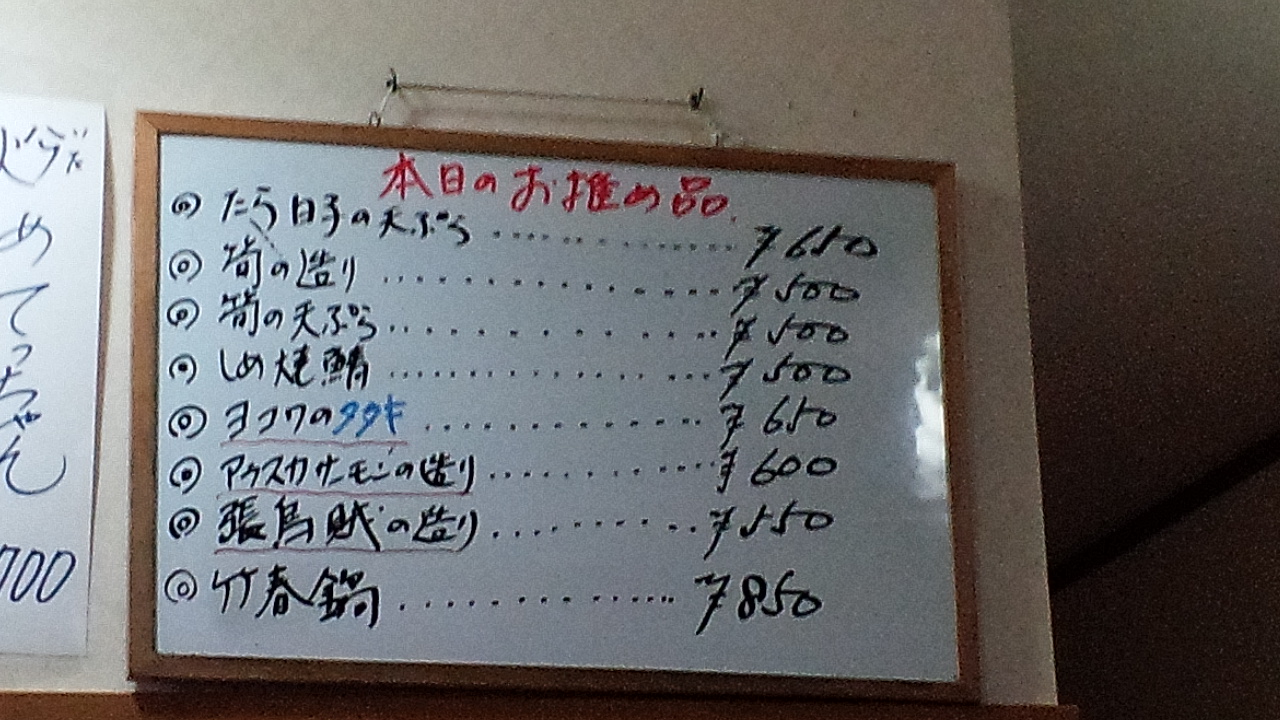 本日のお推め品.
◎ たら白子の天ぷら ............... ¥650
◎ 筍の造り ............... ¥500
◎ 筍の天ぷら ............... ¥500
◎ しめ焼鯖 ............... ¥500
◎ ヨコワのタタキ ............... ¥650
◎ アウスカサーモンの造り ............... ¥600
◎ 張烏賊の造り ............... ¥550
◎ 竹春鍋 ............... ¥850
めてっちゃん
700